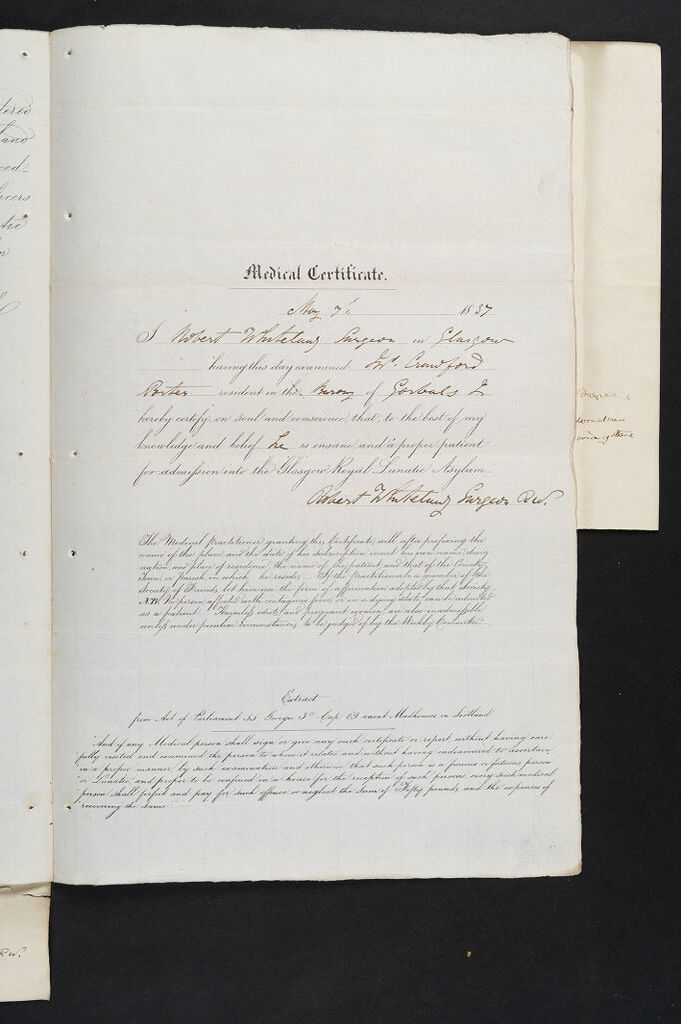 Medical Certificate.
May 7th 1837
I Robert Whitelaw Surgeon in Glasgow
having this day examined Crawford
Porter resident in the Barony of Gorbals I
hereby certify on soul and conscience that to the best of my
knowledge and belief he is insane and a proper patient
for admission into the Glasgow Royal Lunatic Asylum
Robert Whitelaw Surgeon
The Medical practitioner granting this Certificate, will after prefixing the
name of the place, and the date of his subscription insert his own name, desig
nation, and place of residence, the name of the patient and that of the County,
town, or parish in which he resides. If the Practitioner be a member of the
Society of Friends, let him use the form of affirmation adopted by that Society.
N.B. No person affected with contagious fever, or in a dying state, can be admitted
as a patient. Harmless idiots, and pregnant women, are also inadmissible
unless under peculiar circumstances to be judged of by the Weekly Committee.
Extract
from Act of Parliament 55 George 3d Cap 69 anent Madhouses in Scotland
"And if any Medical person shall sign or give any such certificate or report without having care
fully visited and examined the person to whom it relates and without having endeavoured to ascertain
in a proper manner by such examination and otherwise that such person is a furious or fatuous person
or Lunatic, and proper to be confined in a house for the reception of such persons, every such medical
person shall forfeit and pay for such offence or neglect the sum of Fifty pounds, and the expenses of
recovering the same."